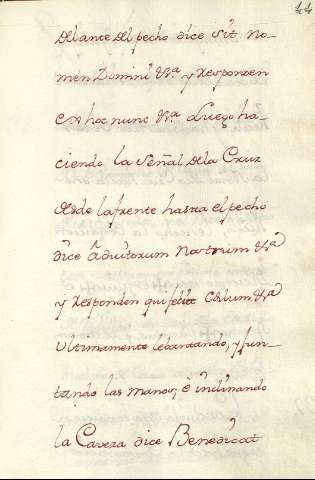 44
delante del pecho dice sit no-
men Domini &.ª y responden
ex hoc nunc &.ª Luego ha-
ciendo la señal dela Cruz
desde la frente hasta el pecho
dice Adiutorum nostrum &ª
y responden qui fecit Celum &ª
ultimamente lebantando, y jun-
tando las manos, è inclinando
la Caveza dice Benedicat